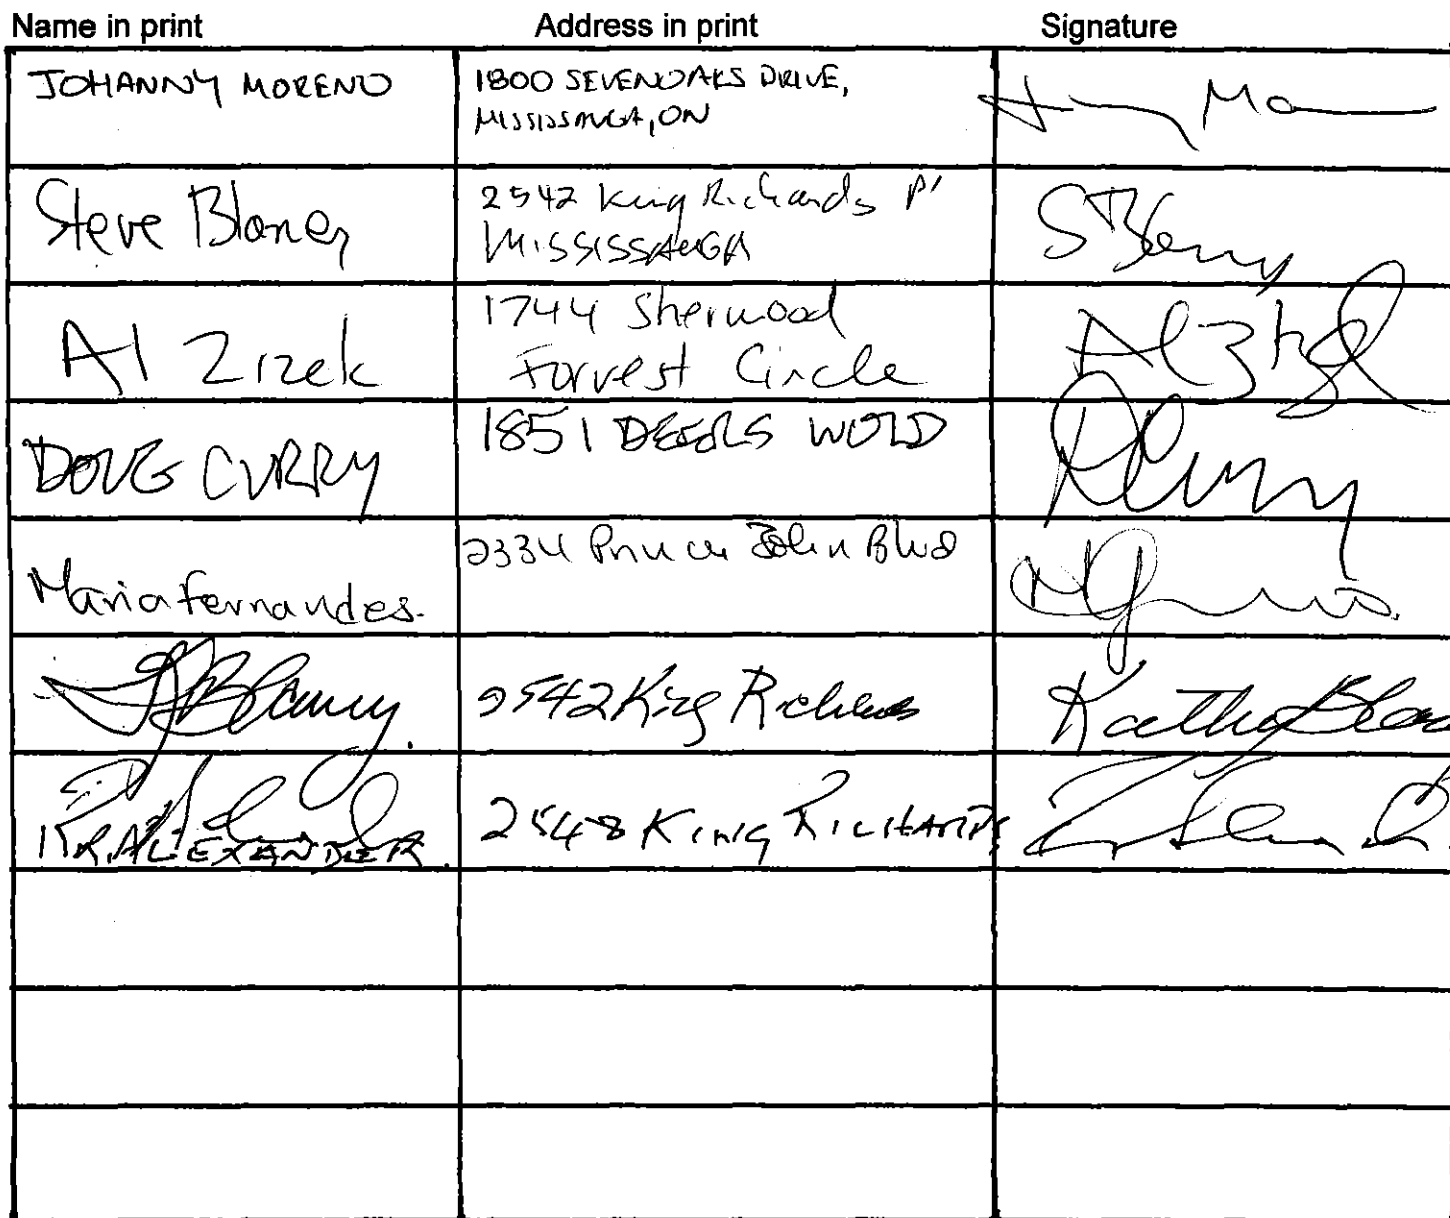 Name in print Address in print Signature
JOHANNY MORENO 1800 SEVENOAKS DRIVE,
MISSISSAUGA, ON
Steve Blaney 2542 King Richards Pl
MISSISSAUGA
Al Zizek 1744 Sherwood
Forrest Circle
DOUG CURRY 1851 DEERS WOLD
Maria Fernandes. 2334 Prince John Blvd
Blaney. 2542 King Richards Kathy
ALEXANDER. 2548 King RICHARDS